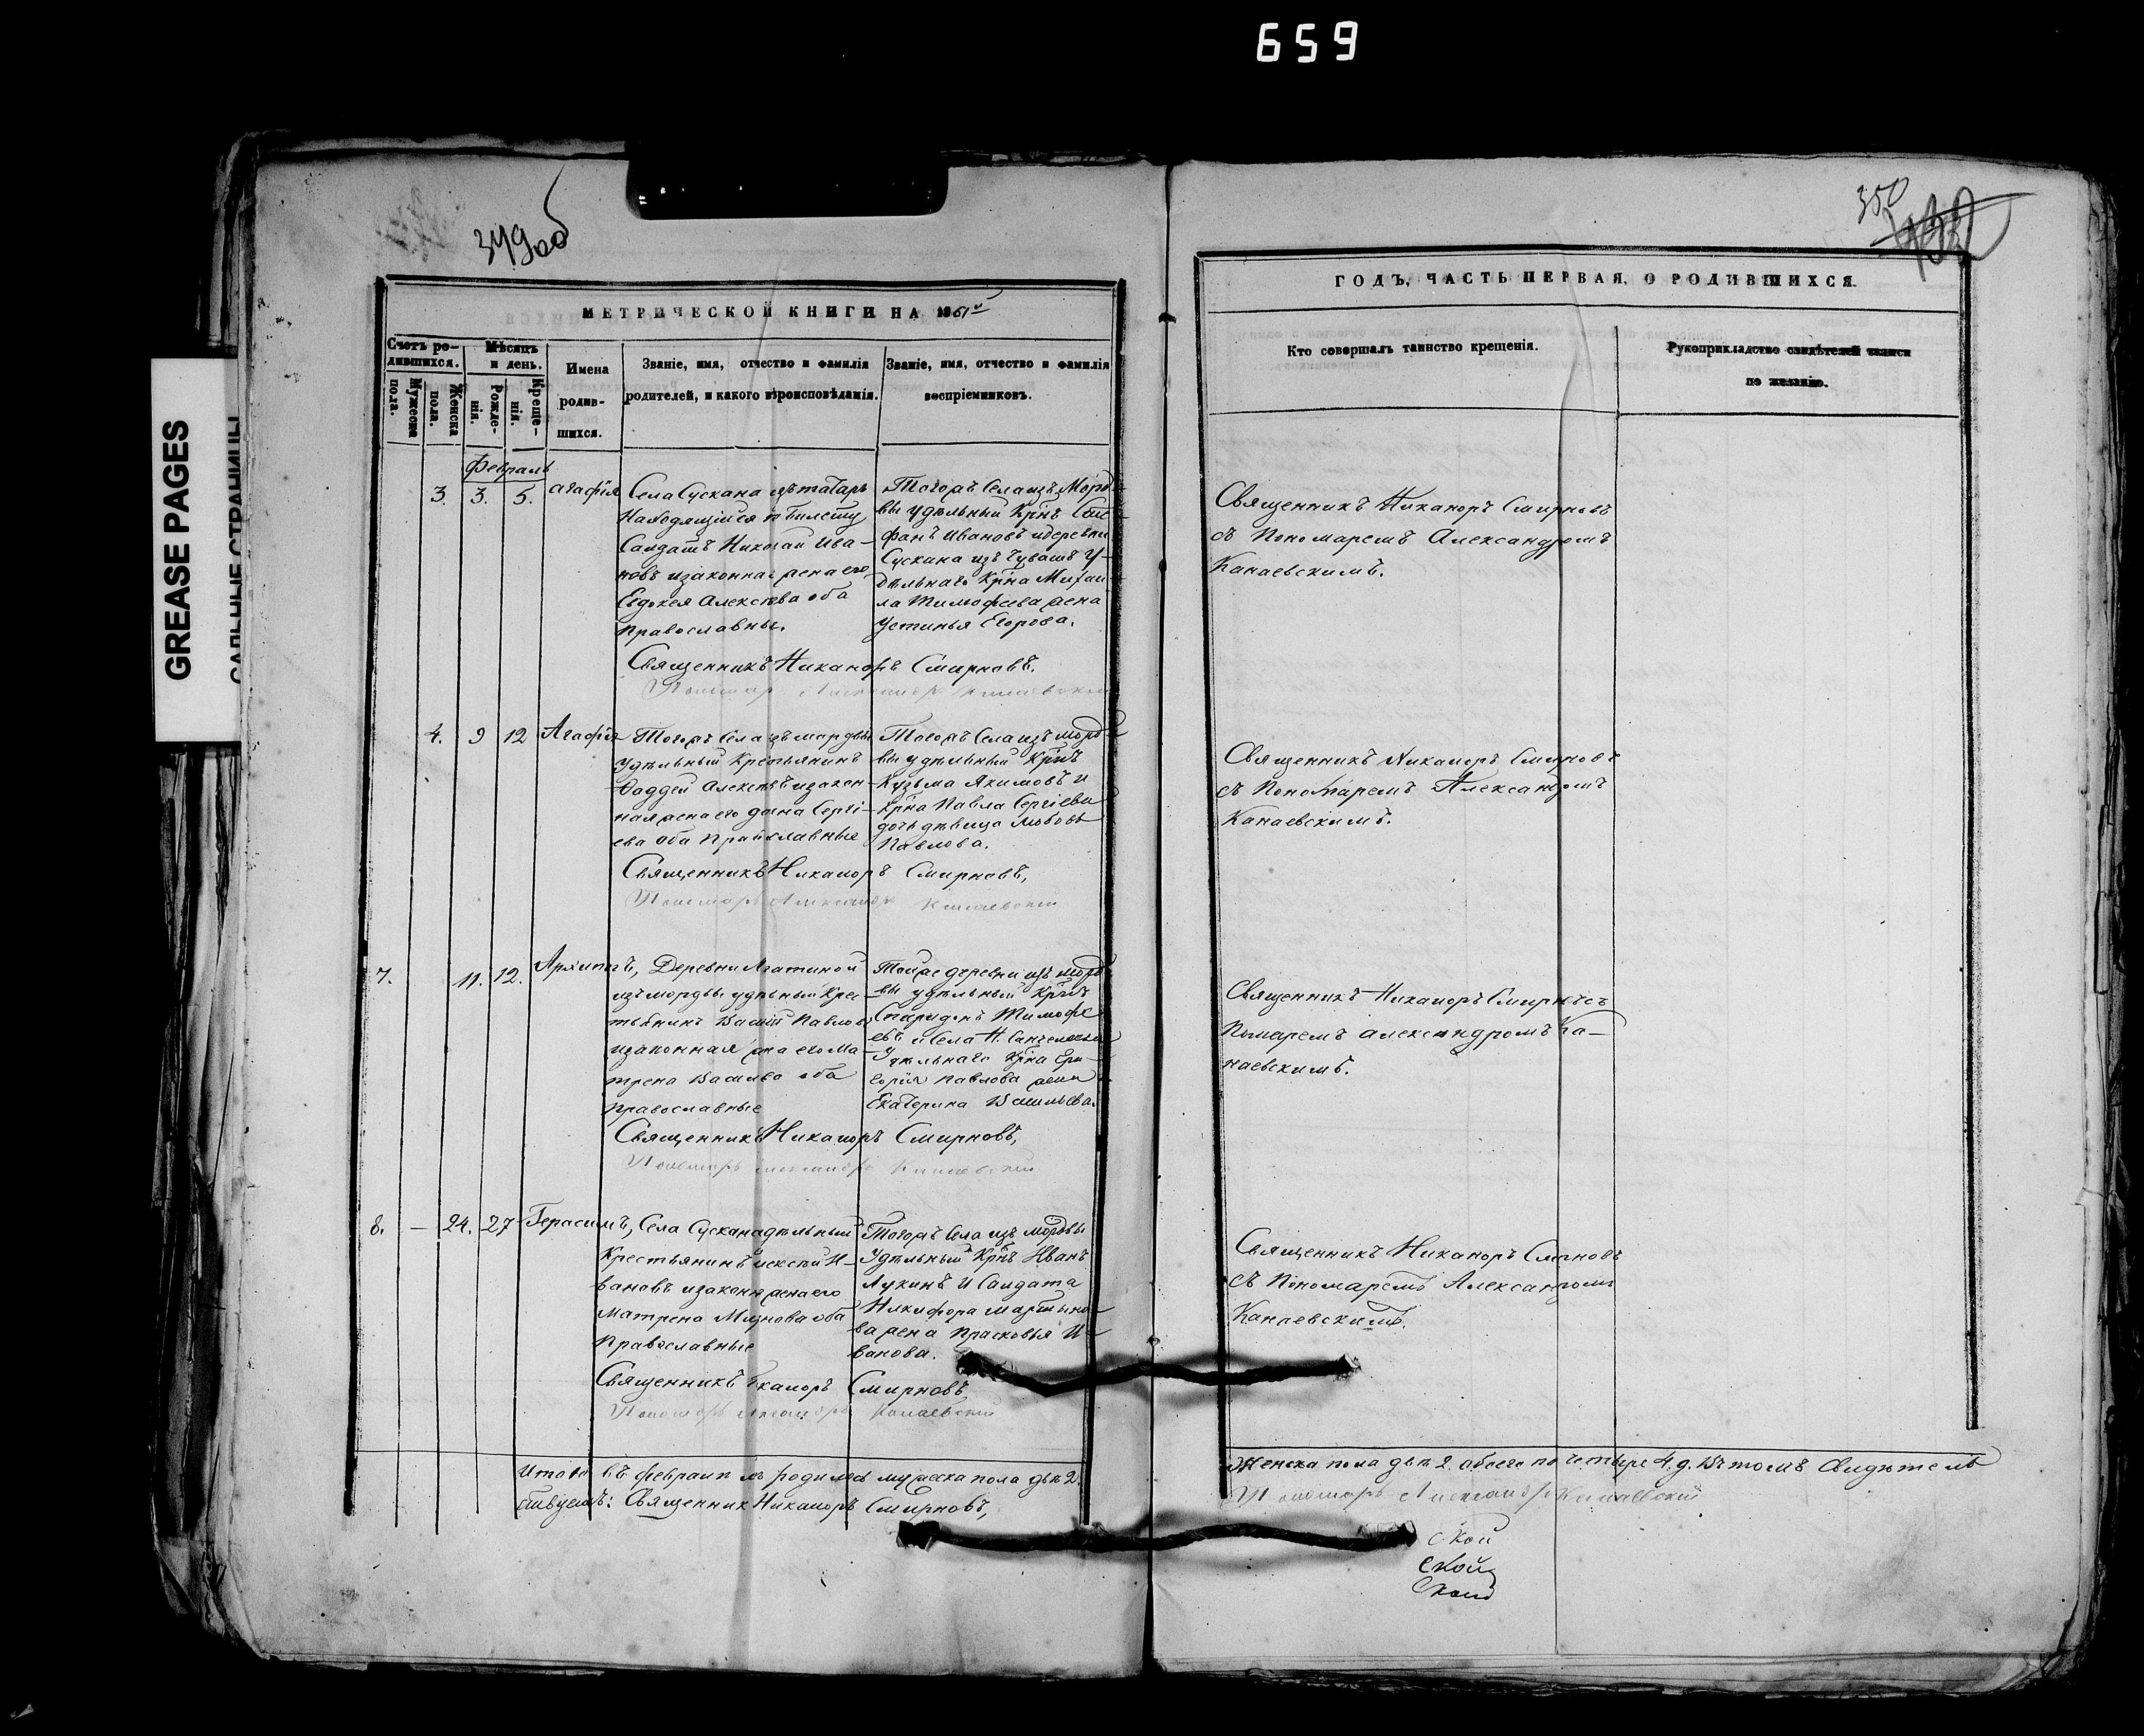 659
GREASE PAGES
САЛЬНЫЕ СТРАНИЦЫ
349об
350
МЕТРИЧЕСКОЙ КНИГИ НА 1861й
ГОДЪ, ЧАСТЬ ПЕРВАЯ, О РОДИВШИХСЯ.
Счетъ ро-
дившихся.
Мужеска
пола.
Женска
пола.
Мѣсяцъ
и день.
Рожде-
нія.
Креще-
нія.
Имена
родив-
шихся.
Званіе, имя, отчество и фамилія
родителей, и какого вѣроисповѣданія.
Званіе, имя, отчество и фамилія
воспріемниковъ.
Кто совершалъ таинство крещенія.
Рукоприкладство свидѣтелей записи
по желанію.
Февраль
3. 3. 5. Агафія
Села Сускана изъ татаръ
находящійся по билету
Салдатъ Николай Ива-
новъ и законная жена его
Евдокея Алексѣва оба
православны.
Тогожъ Села изъ Морд-
вы удѣльный Крнъ Сте
фанъ Ивановъ и деревни
Сускана изъ Чувашъ У-
дѣльнаго Крна Михаи-
ла Тимофеева жена
Устинья Егорова.
Священникъ Никаноръ Смирновъ
съ Пономаремъ Александромъ
Канаевскимъ.
Священникъ Никаноръ Смирновъ.
Пономарь Александръ Канаевский
4. 9 12 Агафія
Тогожъ Села изъ мордвы
Удѣльный Крестьянинъ
Фаддей Алексѣвъ и закон-
ная жена его Сергі-
ева оба Православные
Тогожъ Села изъ морд-
вы удѣльный Крнъ
Кузьма Якимовъ и
Крна Павла Сергіева
дочь дѣвица Любовь
Павлова.
Священникъ Никаноръ Смирновъ
съ Пономаремъ Александромъ
Канаевскимъ.
Священникъ Никаноръ Смирновъ,
Пономарь Александръ Канаевский
7. 11. 12. Архипъ,
Деревни
изъ мордвы удѣльный Крес
тьянинъ Васілій Павловъ
и законная жена его Ма-
трена Васильва оба
православные
Тойже деревни изъ морд
вы удѣльный Крнъ
Спиридонъ Тимофе
евъ и Села Н.
Удѣльнаго Крна Гри-
горія Павлова жена
Екатерина Васильева.
Священникъ Никаноръ съ
александромъ Ка-
наевскимъ.
Священникъ Никаноръ Смирновъ,
Пономарь Александръ Канаевский
8. — 24. 27 Герасимъ,
Села Сускана удѣльный
Крестьянинъ И-
вановъ и законня жена его
Матрена оба
Православные
Тогожъ Села изъ мордвы
Удѣльный Крнъ Иванъ
Лукинъ и Салдата
Никифора Мартыно-
ва жена Прасковья И-
ванова.
Священникъ Никаноръ
съ Пономаремъ Александромъ
Канаевскимъ.
Священникъ Смирновъ
Пономарь Канаевский
Итого въ февралѣ мъ родилось мужеска пола два 2.
Женска пола двѣ 2. обоего по четыре 4. д. Въ томъ Свидѣтель
ствуемъ: Священник Никаноръ Смирновъ,
Пономарь Александръ Канаевский
Ской
Ской
Ской